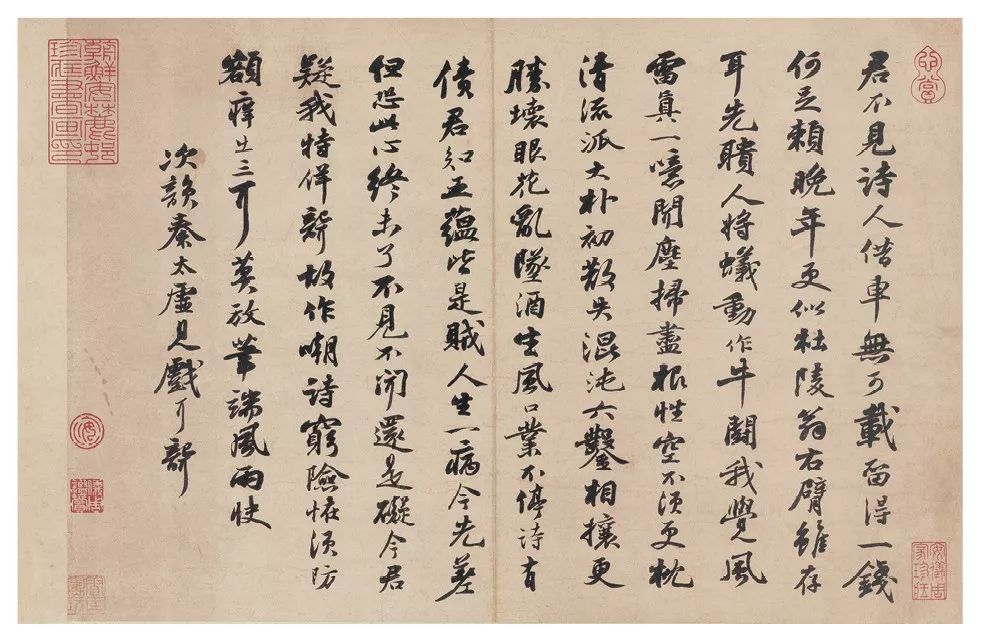 君不見詩人借車無可載留得一錢
何足賴晚年更似杜陵翁右臂雖存
耳先聵人將蟻動作牛鬪我覺風
雷真一噫聞塵掃盡根性空不須更枕
清流派大朴初散失混沌六鑿相攘更
勝壞眼花亂墜酒生風口業不停詩有
債君知五蘊皆是賊人生一病今先差
但恐此心終未了不見不聞還是礙今君
疑我特佯聾故作嘲詩窮險怪須防
額癢出三耳莫放筆端風雨快
次韻秦太虛見戲耳聾
朝鮮安麓邨珍藏書畫印
安儀周家珍藏